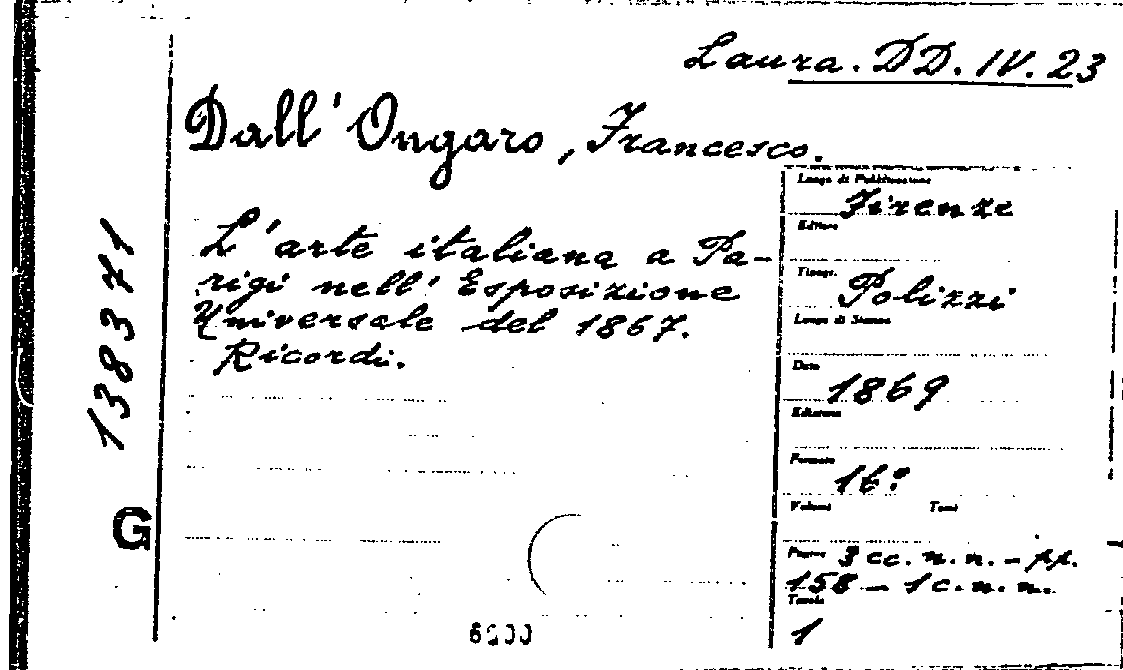 Laura. DD. IV. 23
Dall' Ongaro, Francesco.
L'arte italiana a Pa-
rigi nell' Esposizione
Universale del 1867.
Ricordi.
138371
G
Luogo di Pubblicazione
Firenze
Editore
Tipogr.
Polizzi
Luogo di Stampa
Data
1869
Edizione
Formato
16º
Volumi Tomi
Pagine 3 cc. n. n. - pp.
158 - 1 c. n. n.
Tavole
1